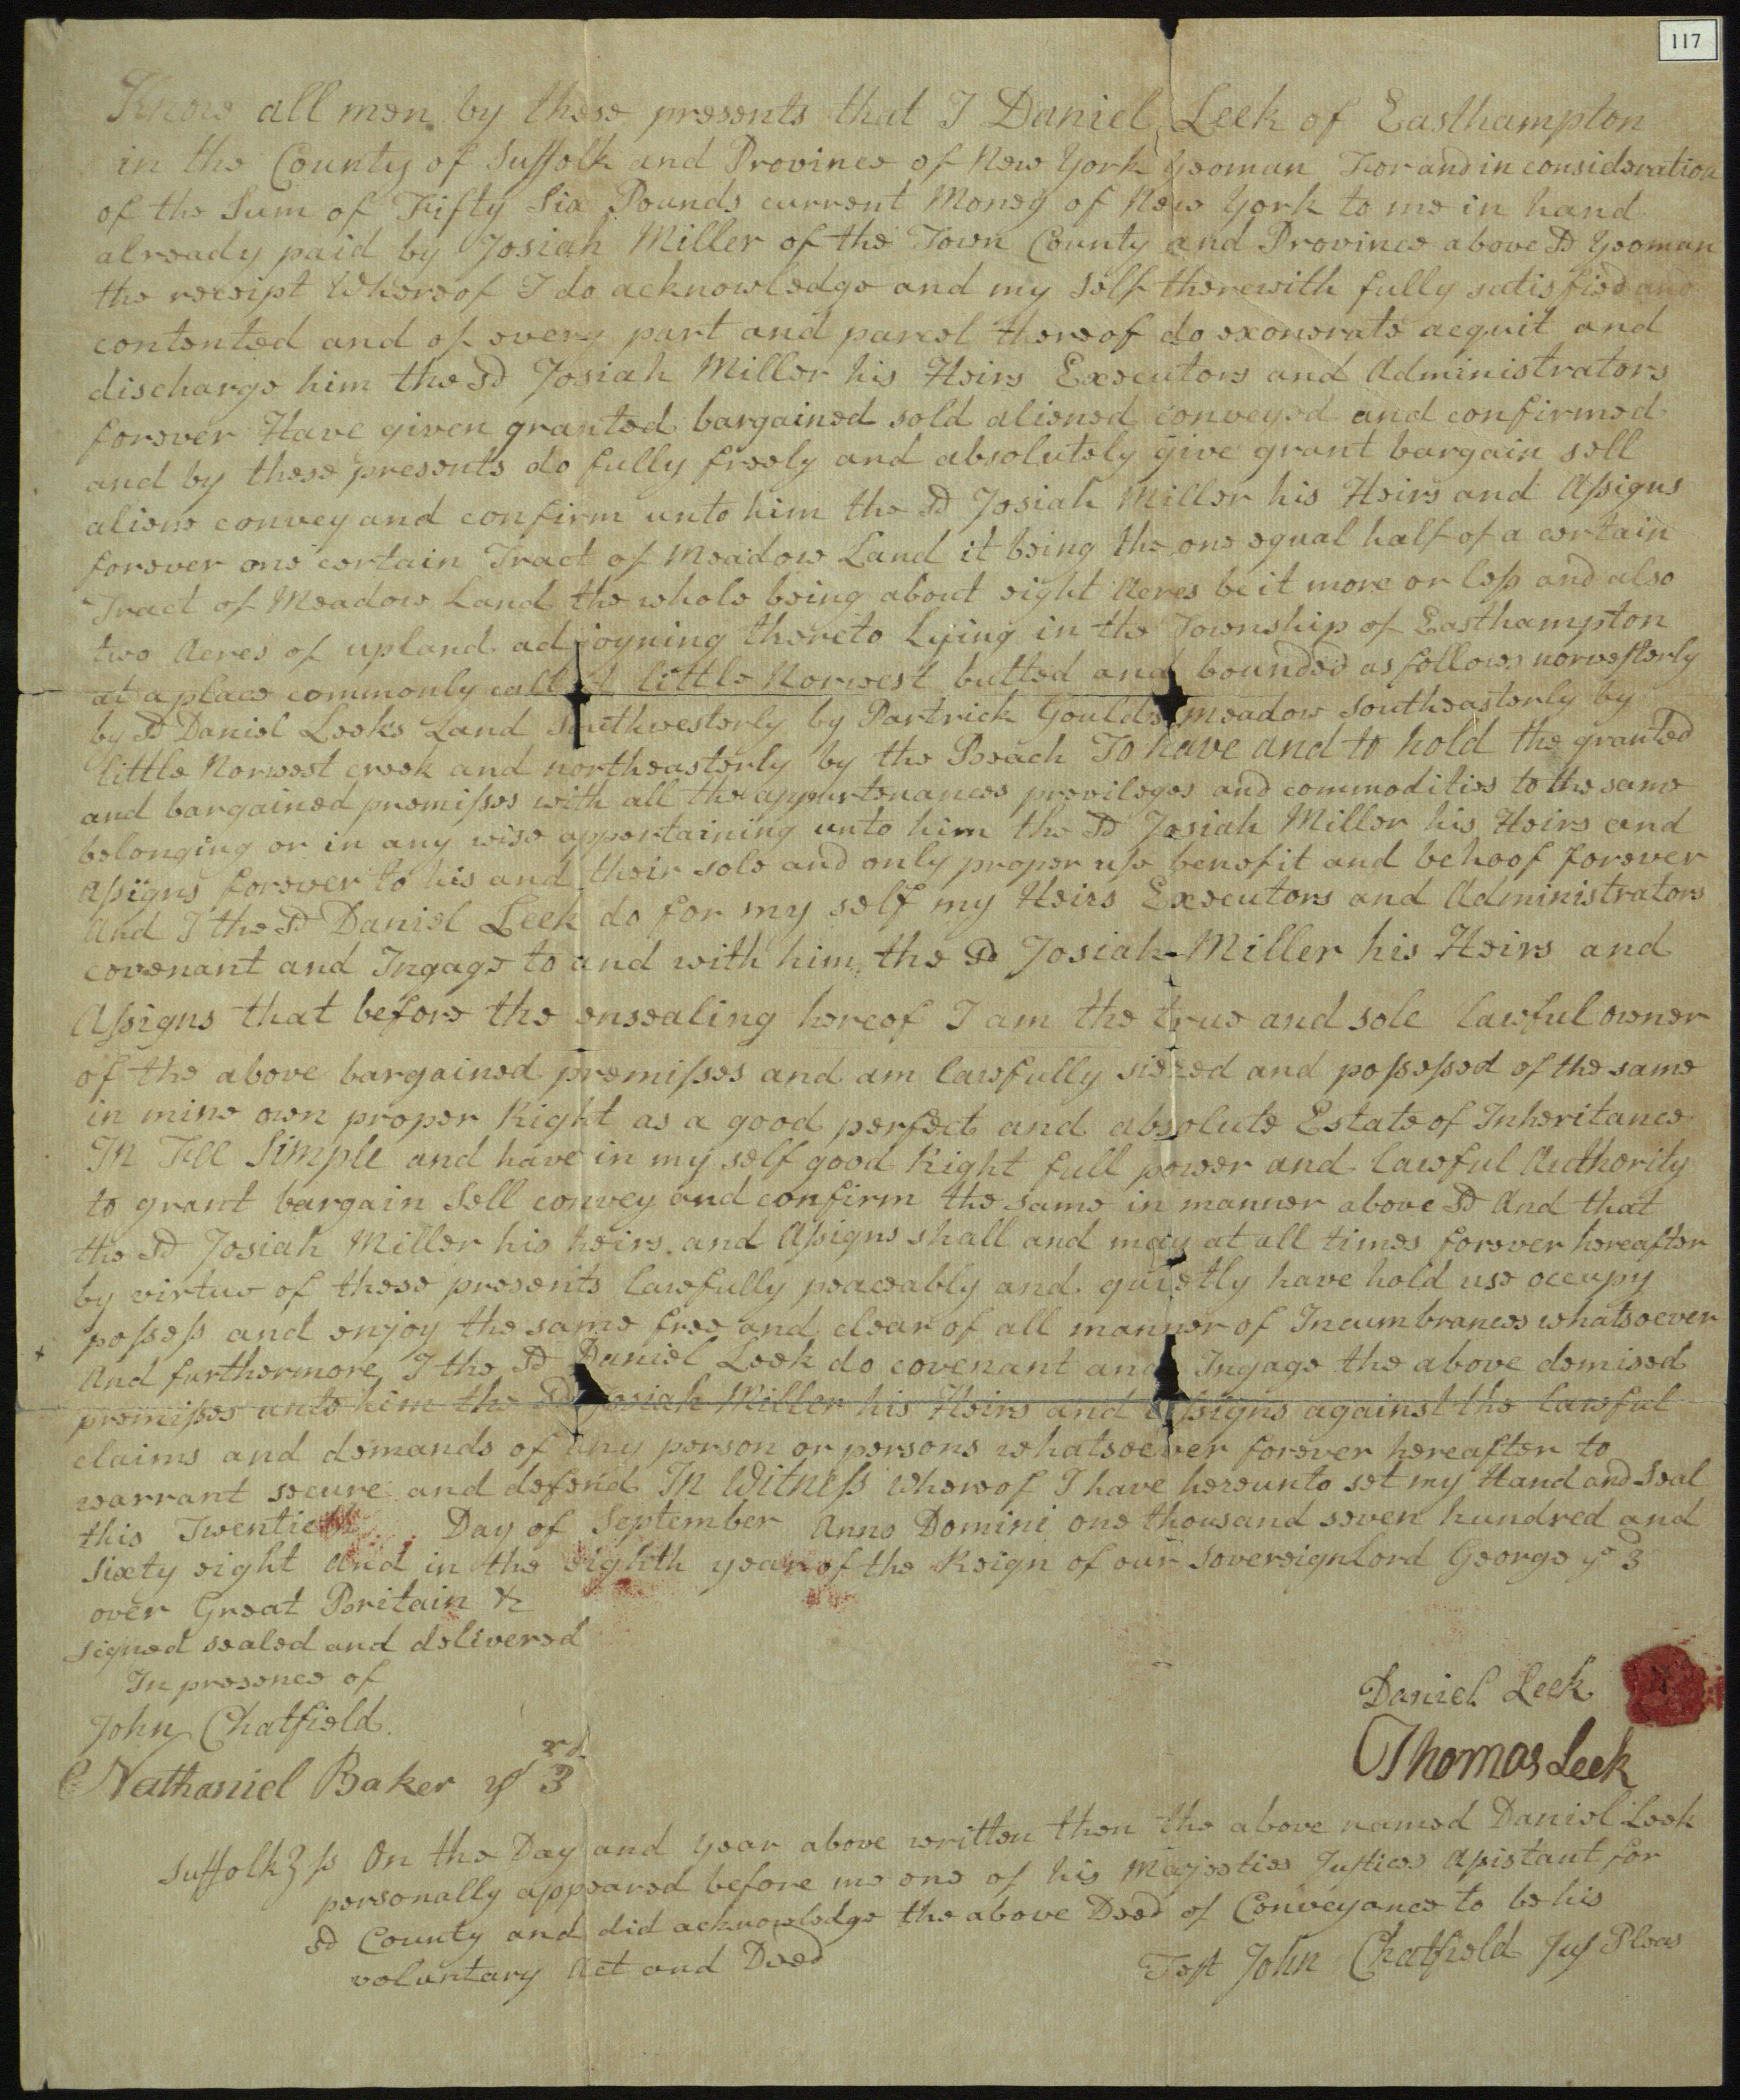 117
Know all men by these presents that I Daniel Leek of Easthampton
in the County of Suffolk and Province of New York yeoman For and in consideration
of the Sum of Fifty Six Pounds current Money of New York to me in hand
already paid by Josiah Miller of the Town County and Province above sd Yeoman
the receipt Whereof I do acknowledge and my self therewith fully satisfied and
contented and of every part and parcel thereof do exonerate acquit and
discharge him the sd Josiah Miller his Heirs Executors and Administrators
forever Have given granted bargained sold aliened conveyed and confirmed
and by these presents do fully freely and absolutely give grant bargain sell
aliene convey and confirm unto him the sd Josiah Miller his Heirs and Aſsigns
forever one certain Tract of Meadow Land it being the one equal half of a certain
Tract of Meadow Land the whole being about eight Acres be it more or leſs and also
two Acres of upland adjoyning thereto Lying in the Township of Easthampton
at a place commonly calld little Norwest butted and bounded as follows norweſterly
by sd Daniel Leeks Land southwesterly by Partrick Goulds meadow Southeasterly by
little Norwest creek and northeasterly by the Beach To have and to hold the granted
and bargained premiſses with all the appurtenances previleges and commodities to the same
belonging or in any wise appertaining unto him the sd Josiah Miller his Heirs and
Aſsigns forever to his and their sole and only proper uſe benefit and behoof forever
And I the sd Daniel Leek do for my self my Heirs Executors and Administrators
covenant and Ingage to and with him the sd Josiah Miller his Heirs and
Aſsigns that before the ensealing hereof I am the true and sole lawful owner
of the above bargained premiſses and am lawfully siezed and poſseſsed of the same
in mine own proper Right as a good perfect and absolute Estate of Inheritance
In Fee Simple and have in my self good Right full power and lawful Authority
to grant bargain Sell convey and confirm the same in manner above sd And that
the sd Josiah Miller his heirs and Aſsigns shall and may at all times forever hereafter
by virtue of these presents lawfully peaceably and quietly have hold use occupy
poſseſs and enjoy the same free and clear of all manner of Incumbrances whatsoever
And furthermore I the sd Daniel Leek do covenant and Ingage the above demised
premiſses unto him the sd Josiah Miller his Heirs and Aſsigns against the lawful
claims and demands of any person or persons whatsoever forever hereafter to
warrant secure and defend In Witneſs whereof I have hereunto set my Hand and Seal
this Twentieth Day of September Anno Domini one thousand seven hundred and
Sixty eight And in the eighth year of the Reign of our Sovereign Lord George ye 3
over Great Britain &c
Signed sealed and delivered
In presence of
John Chatfield
Nathaniel Baker ye 3rd
Daniel Leek
Thomas Leek
Suffolk} ſs On the Day and year above written then the above named Daniel Leek
personally appeared before me one of his Majesties Juſtices Aſsistant for
sd County and did acknowledge the above Deed of Conveyance to be his
voluntary Act and Deed
Teſt John Chatfield Juſ Pleas